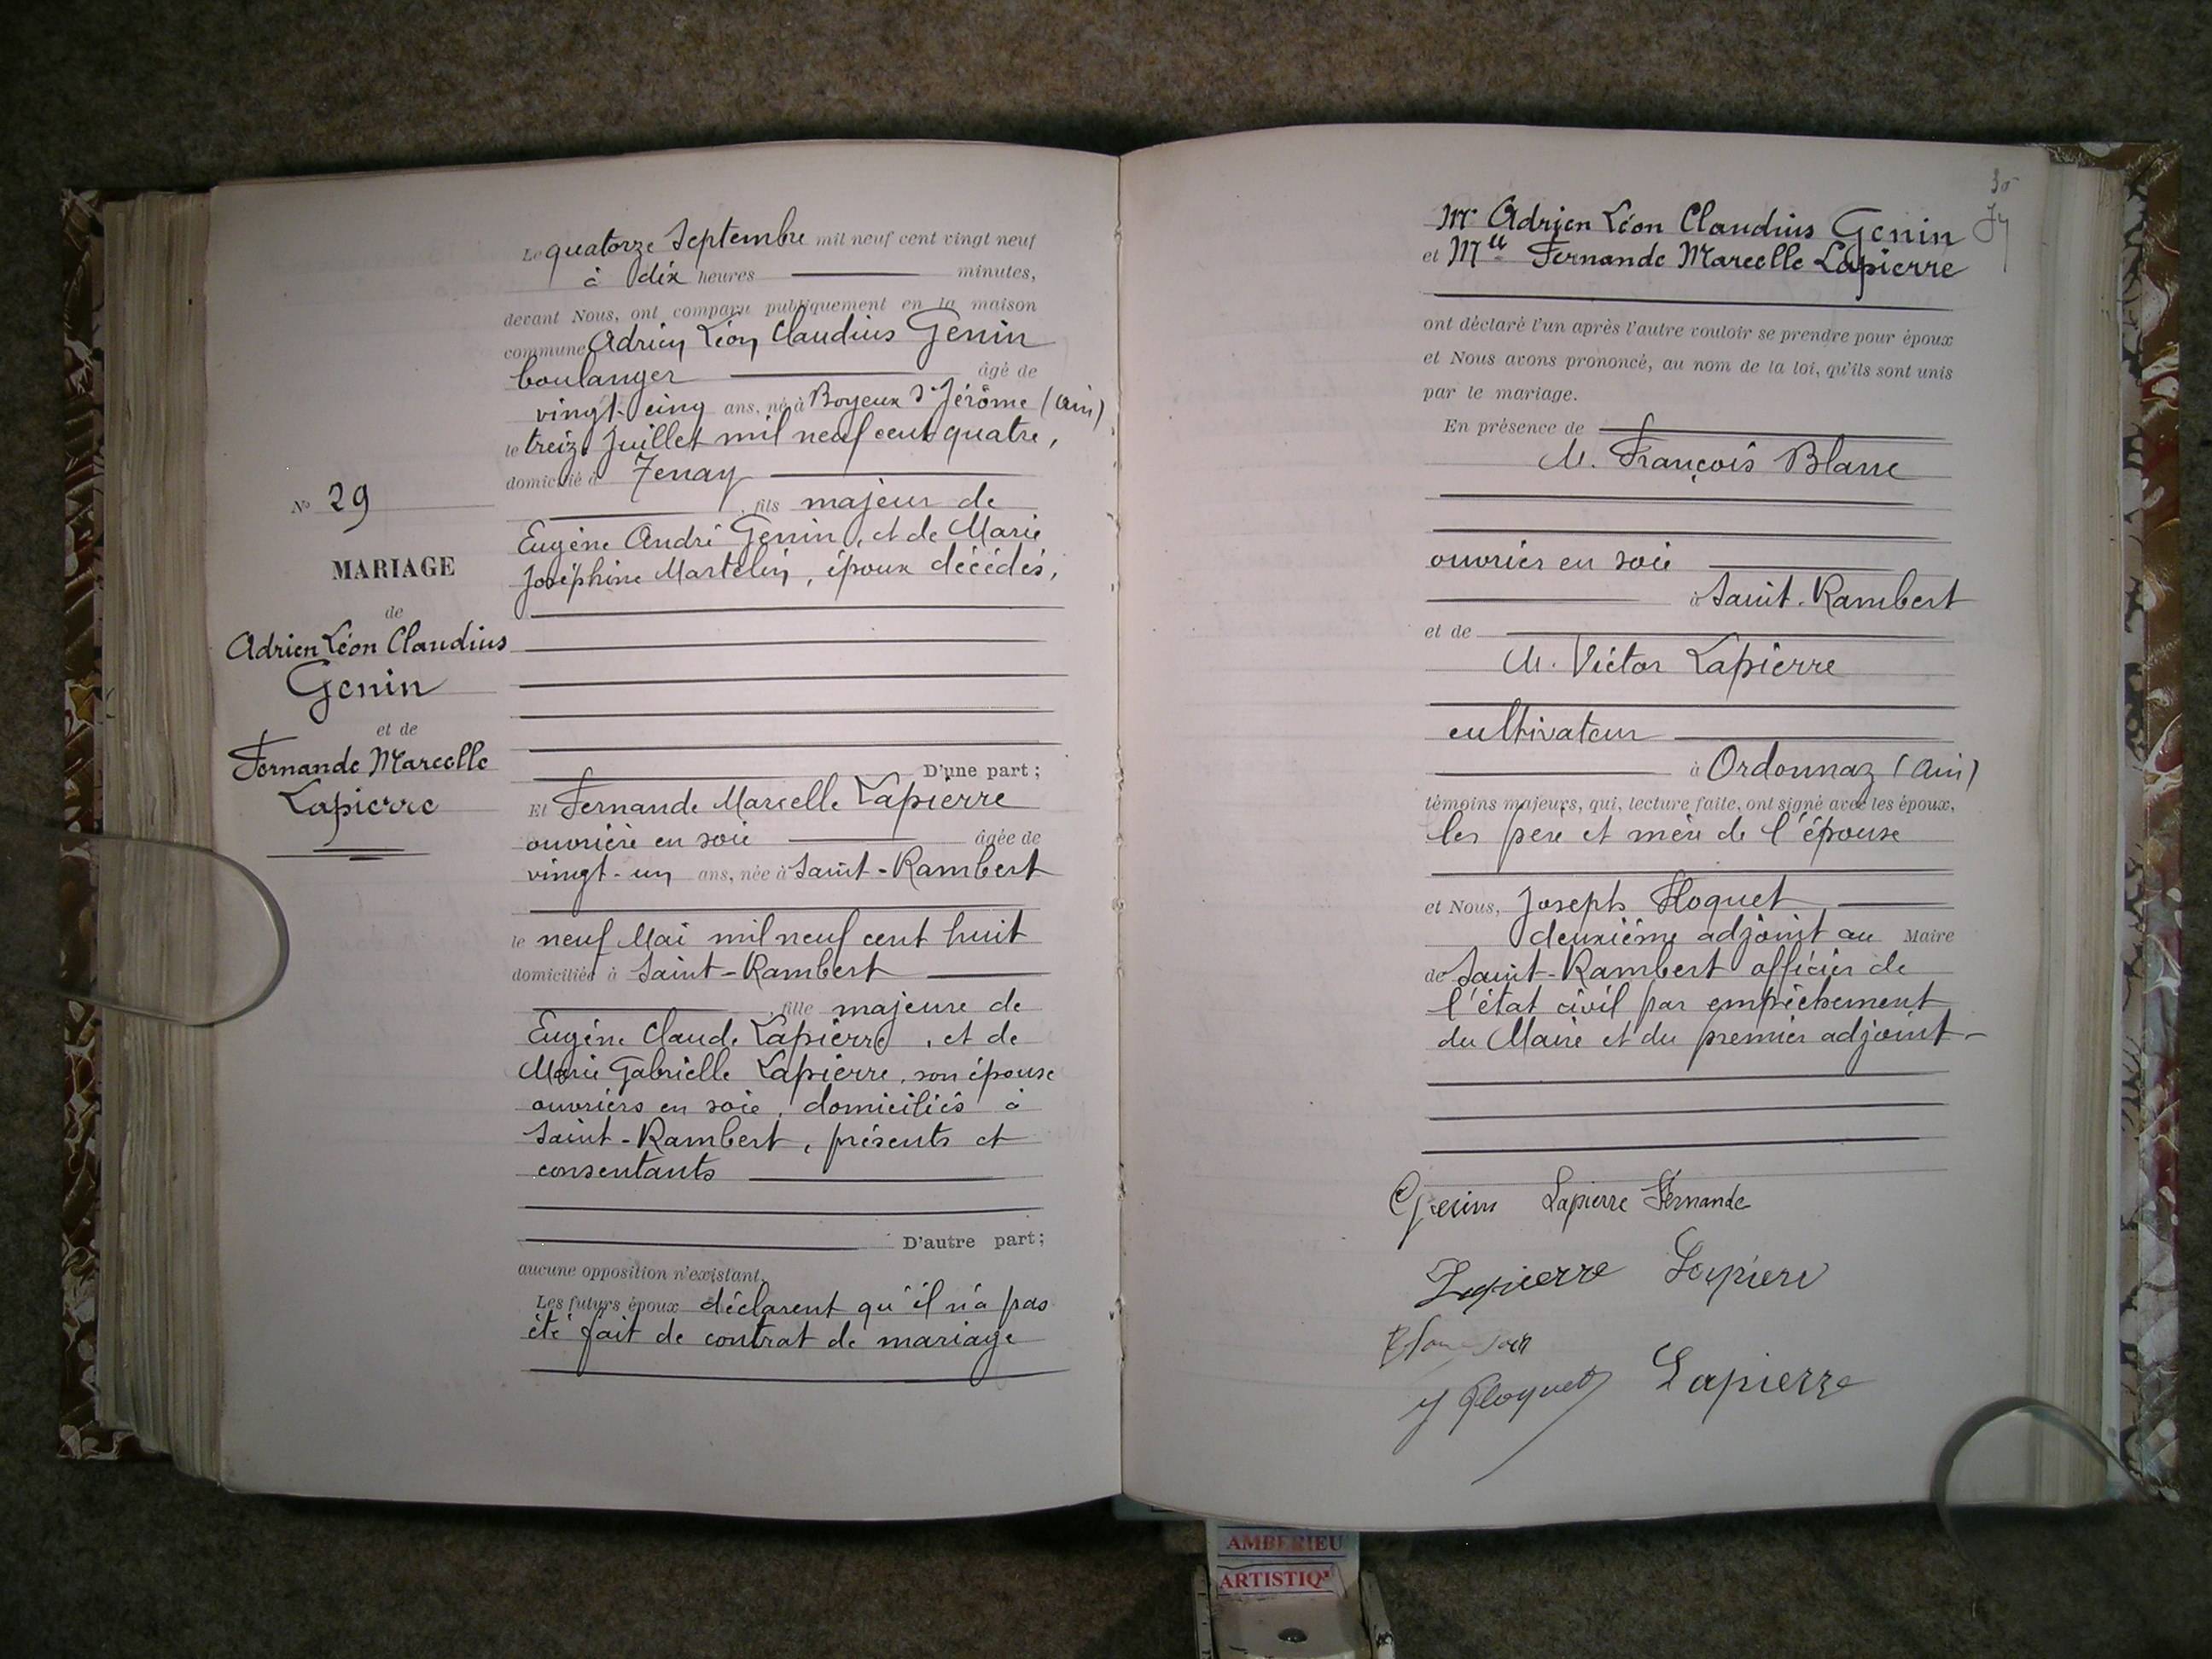 Le quatorze Septembre mil neuf cent vingt neuf
à dix heures minutes,
devant Nous, ont comparu publiquement en la maison
commune Adrien Léon Claudius Genin
boulanger âgé de
vingt-cinq ans, né à Boyeux St Jérôme (Ain)
le treize Juillet mil neuf cent quatre,
domicilié à Tenay
fils majeur de
Eugène André Genin, et de Marie
Joséphine Martelin, époux décédés,
D'une part;
Et Fernande Marcelle Lapierre
ouvrière en soie âgée de
vingt-un ans, née à Saint-Rambert
le neuf Mai mil neuf cent huit
domiciliée à Saint-Rambert
fille majeure de
Eugène Claude Lapierre, et de
Marie Gabrielle Lapierre, son épouse
ouvriers en soie, domiciliés à
Saint-Rambert, présents et
consentants
D'autre part;
aucune opposition n'existant.
Les futurs époux déclarent qu'il n'a pas
été fait de contrat de mariage
No 29
MARIAGE
de
Adrien Léon Claudius
Genin
et de
Fernande Marcelle
Lapierre
Mr Adrien Léon Claudius Genin
et Mlle Fernande Marcelle Lapierre
ont déclaré l'un après l'autre vouloir se prendre pour époux
et Nous avons prononcé, au nom de la loi, qu'ils sont unis
par le mariage.
En présence de
M. François Blanc
ouvrier en soie
à Saint-Rambert
et de
M. Victor Lapierre
cultivateur
à Ordonnaz (Ain)
témoins majeurs, qui, lecture faite, ont signé avec les époux,
les père et mère de l'épouse
et Nous, Joseph Floquet
deuxième adjoint au Maire
de Saint-Rambert officier de
l'état civil par empêchement
du Maire et du premier adjoint-
Genin Lapierre Fernande
Lapierre Lapierre
J Floquet Lapierre
AMBERIEU
ARTISTIQ